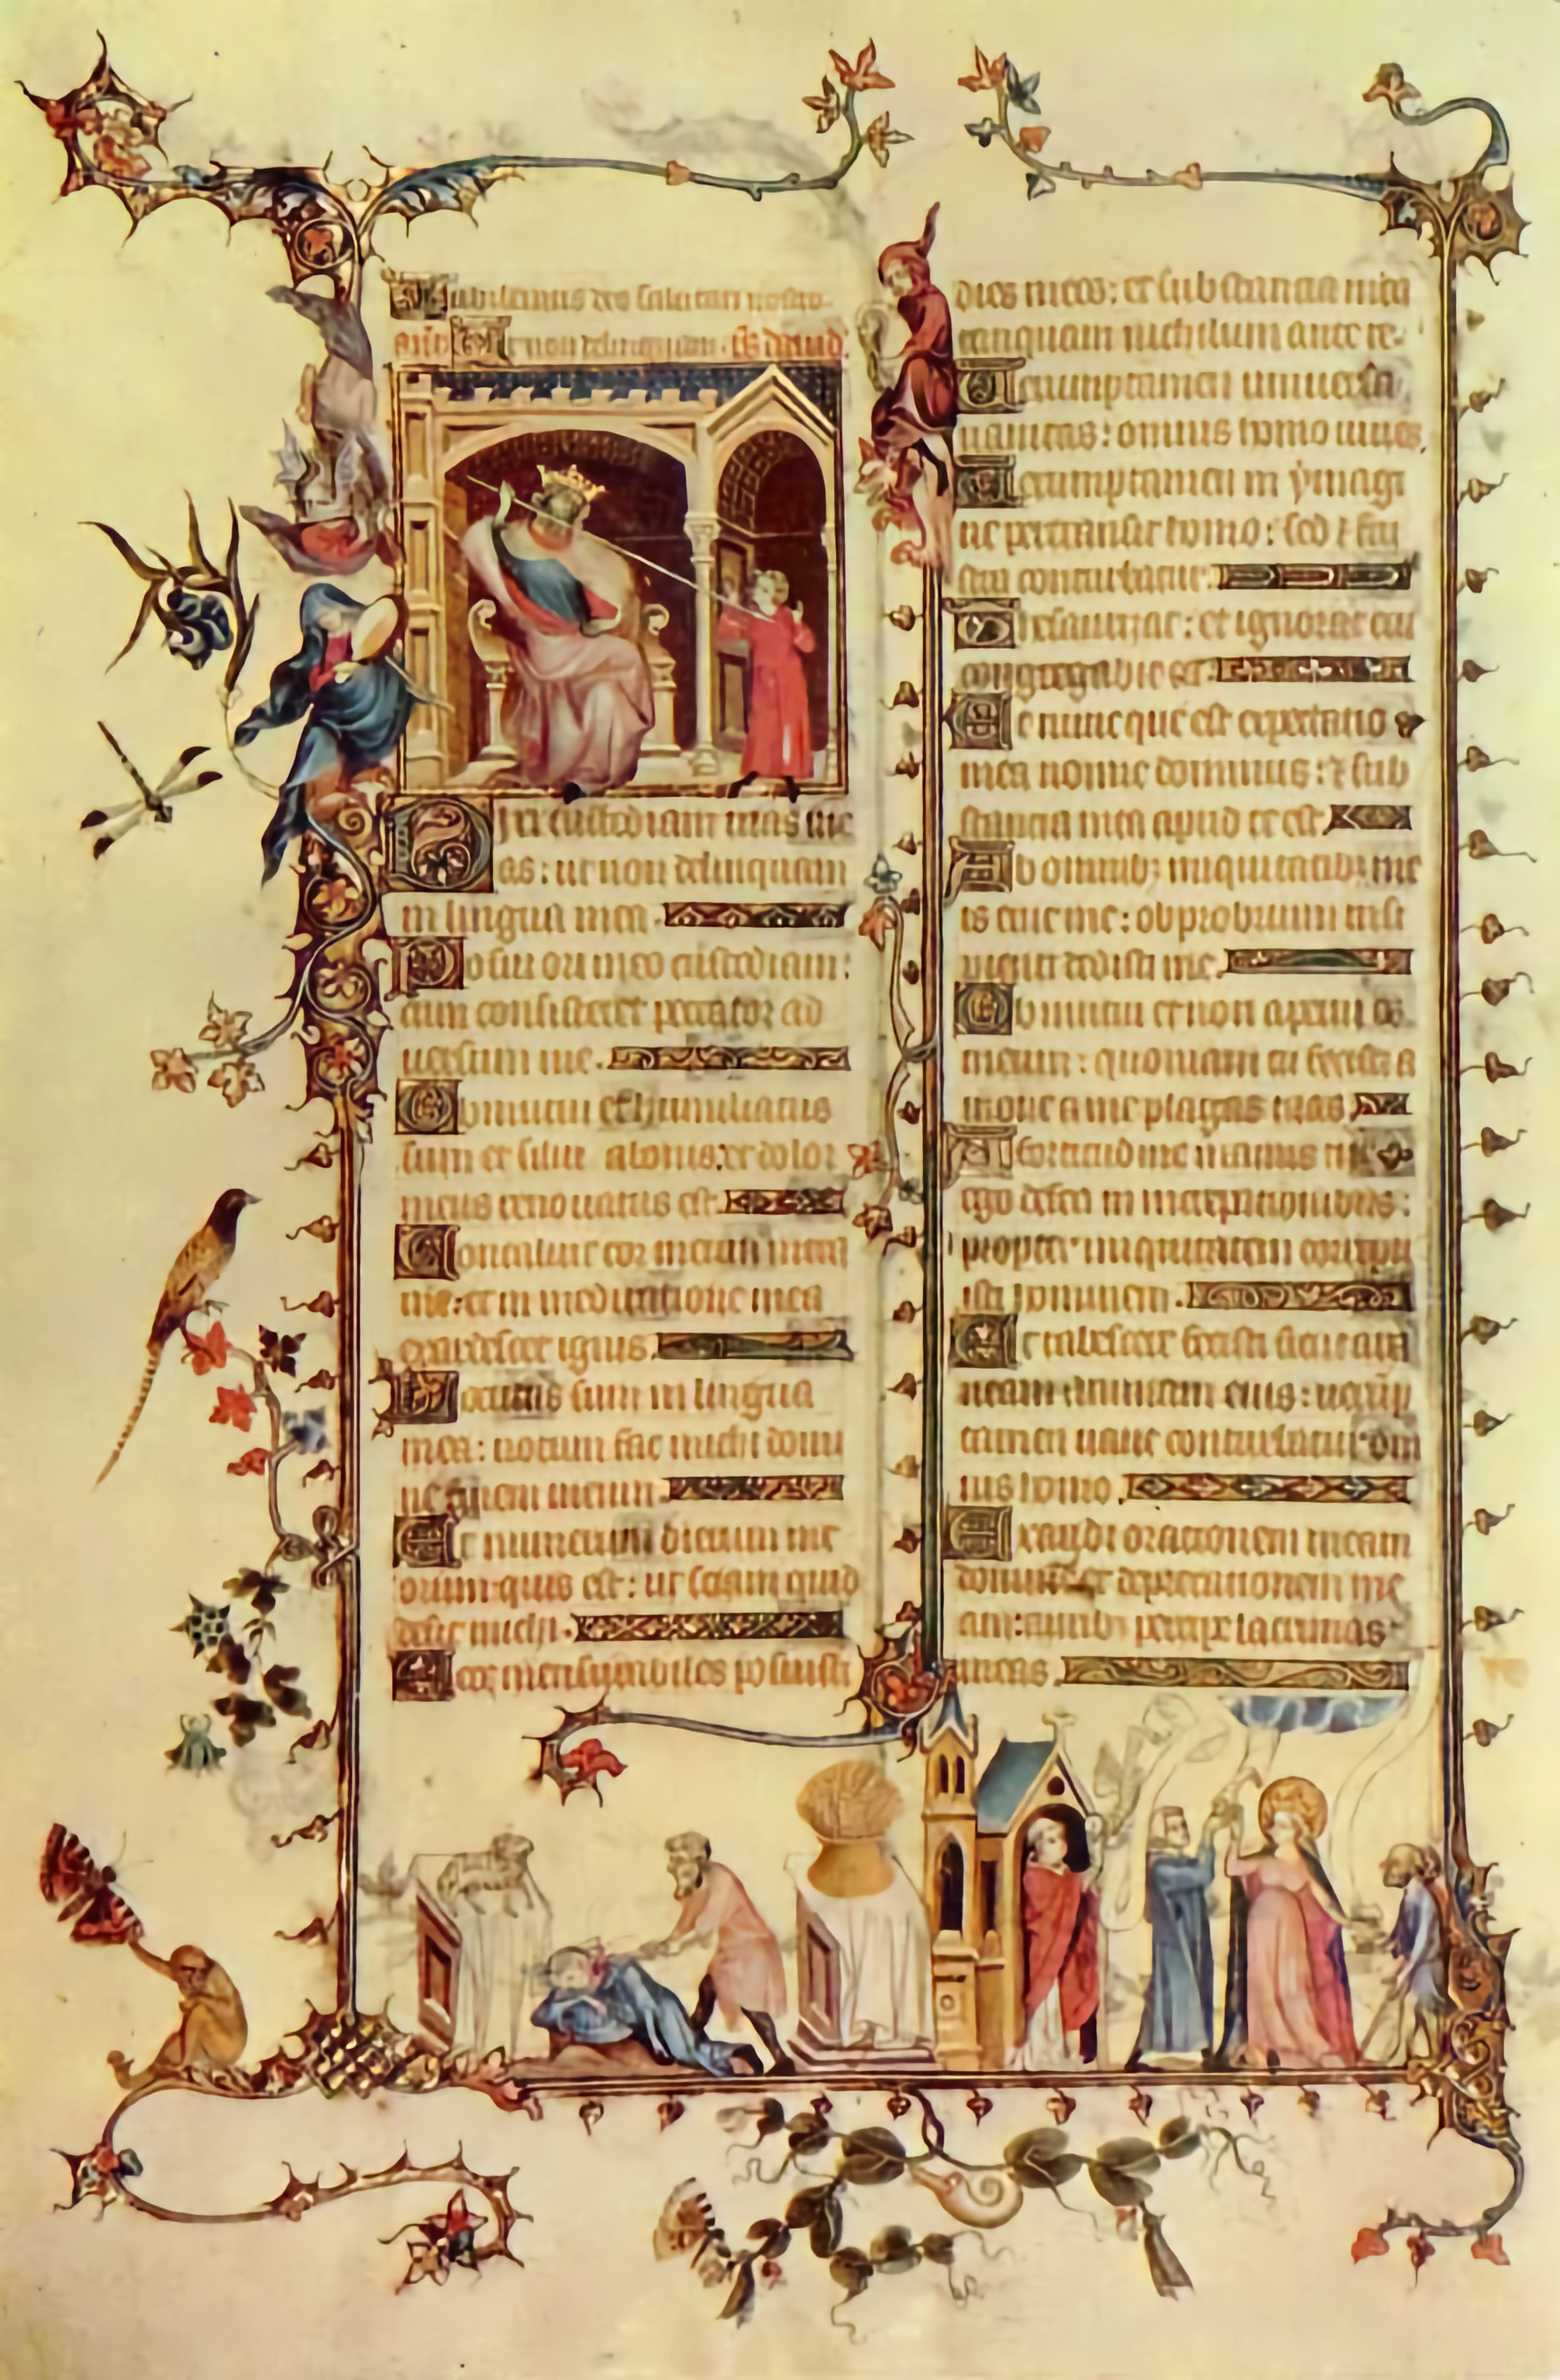 Iubilemus deo salutari nostro.
Ut non delinquam. dauid.
Dixi custodiam uias me
as: ut non delinquam
in lingua mea.
Posui ori meo custodiam:
cum consisteret peccator ad
uersum me.
Obmutui et humiliatus
sum et silui a bonis: et dolor
meus renouatus est.
Concaluit cor meum intra
me: et in meditatione mea
exardescet ignis.
Locutus sum in lingua
mea: notum fac michi domi
ne finem meum.
Et numerum dierum me
orum quis est: ut sciam quid
desit michi.
Ecce mensurabiles posuisti
dies meos: et substancia mea
tanquam nichilum ante te.
Verumptamen uniuersa
uanitas: omnis homo uiuens.
Verumptamen in ymagi
ne pertransit homo: sed et fru
stra conturbatur.
Thesaurizat: et ignorat cui
congregabit ea.
Et nunc que est expectatio
mea nonne dominus: et sub
stancia mea apud te est.
Ab omnibus iniquitatibus me
is erue me: obprobrium insi
pienti dedisti me.
Obmutui et non aperui os
meum: quoniam tu fecisti a
moue a me plagas tuas.
A fortitudine manus tue
ego defeci in increpationibus:
propter iniquitatem corripu
isti hominem.
Et tabescere fecisti sicut ara
neam animam eius: uerump
tamen uane conturbatur om
nis homo.
Exaudi orationem meam
domine et deprecationem me
am: auribus percipe lacrimas
meas.